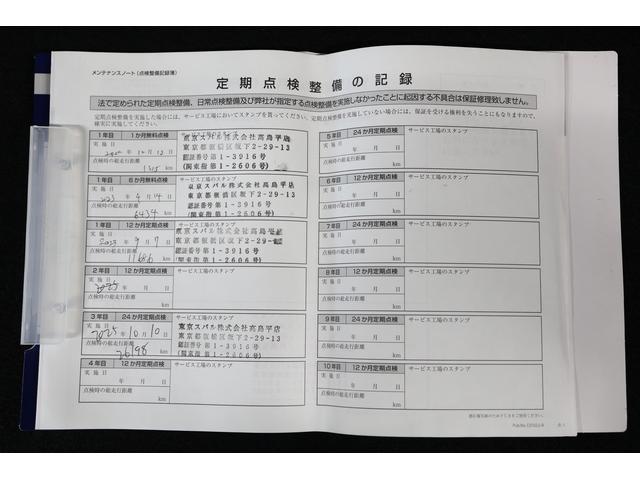 メンテナンスノート（点検整備記録簿）
定期点検整備の記録
法で定められた定期点検整備、日常点検整備及び弊社が指定する点検整備を実施しなかったことに起因する不具合は保証修理致しません。
定期点検整備を実施した場合には、サービス工場においてスタンプを貰ってください。定期点検整備を実施していない場合には、保証を受ける権利を失うこともなりますので、
確実に実施してください。
1年目 1か月無料点検
実施日
年 月 日
点検時の総走行距離
km
東京スバル株式会社高島平店
東京都板橋区坂下2-29-13
認証番号第1-3916号
(関東指第1-2606号)
1年目 6か月無料点検 サービス工場のスタンプ
実施日
2023年4月14日
点検時の総走行距離
6434 km
東京スバル株式会社高島平店
東京都板橋区坂下2-29-13
認証番号第1-3916号
(関東指第1-2606号)
1年目 12か月定期点検
実施日
2023年9月7日
点検時の総走行距離
11686 km
東京スバル株式会社高島平店
東京都板橋区坂下2-29-13
認証番号第1-3916号
(関東指第1-2606号)
2年目 12か月定期点検 サービス工場のスタンプ
実施日
年 月 日
点検時の総走行距離
km
3年目 24か月定期点検 サービス工場のスタンプ
実施日
2025年10月10日
点検時の総走行距離
26198 km
東京スバル株式会社高島平店
東京都板橋区坂下2-29-13
認証番号第1-3916号
(関東指第1-2606号)
4年目 12か月定期点検 サービス工場のスタンプ
実施日
年 月 日
点検時の総走行距離
km
5年目 24か月定期点検 サービス工場のスタンプ
実施日
年 月 日
点検時の総走行距離
km
6年目 12か月定期点検 サービス工場のスタンプ
実施日
年 月 日
点検時の総走行距離
km
7年目 24か月定期点検 サービス工場のスタンプ
実施日
年 月 日
点検時の総走行距離
km
8年目 12か月定期点検 サービス工場のスタンプ
実施日
年 月 日
点検時の総走行距離
km
9年目 24か月定期点検 サービス工場のスタンプ
実施日
年 月 日
点検時の総走行距離
km
10年目 12か月定期点検 サービス工場のスタンプ
実施日
年 月 日
点検時の総走行距離
km